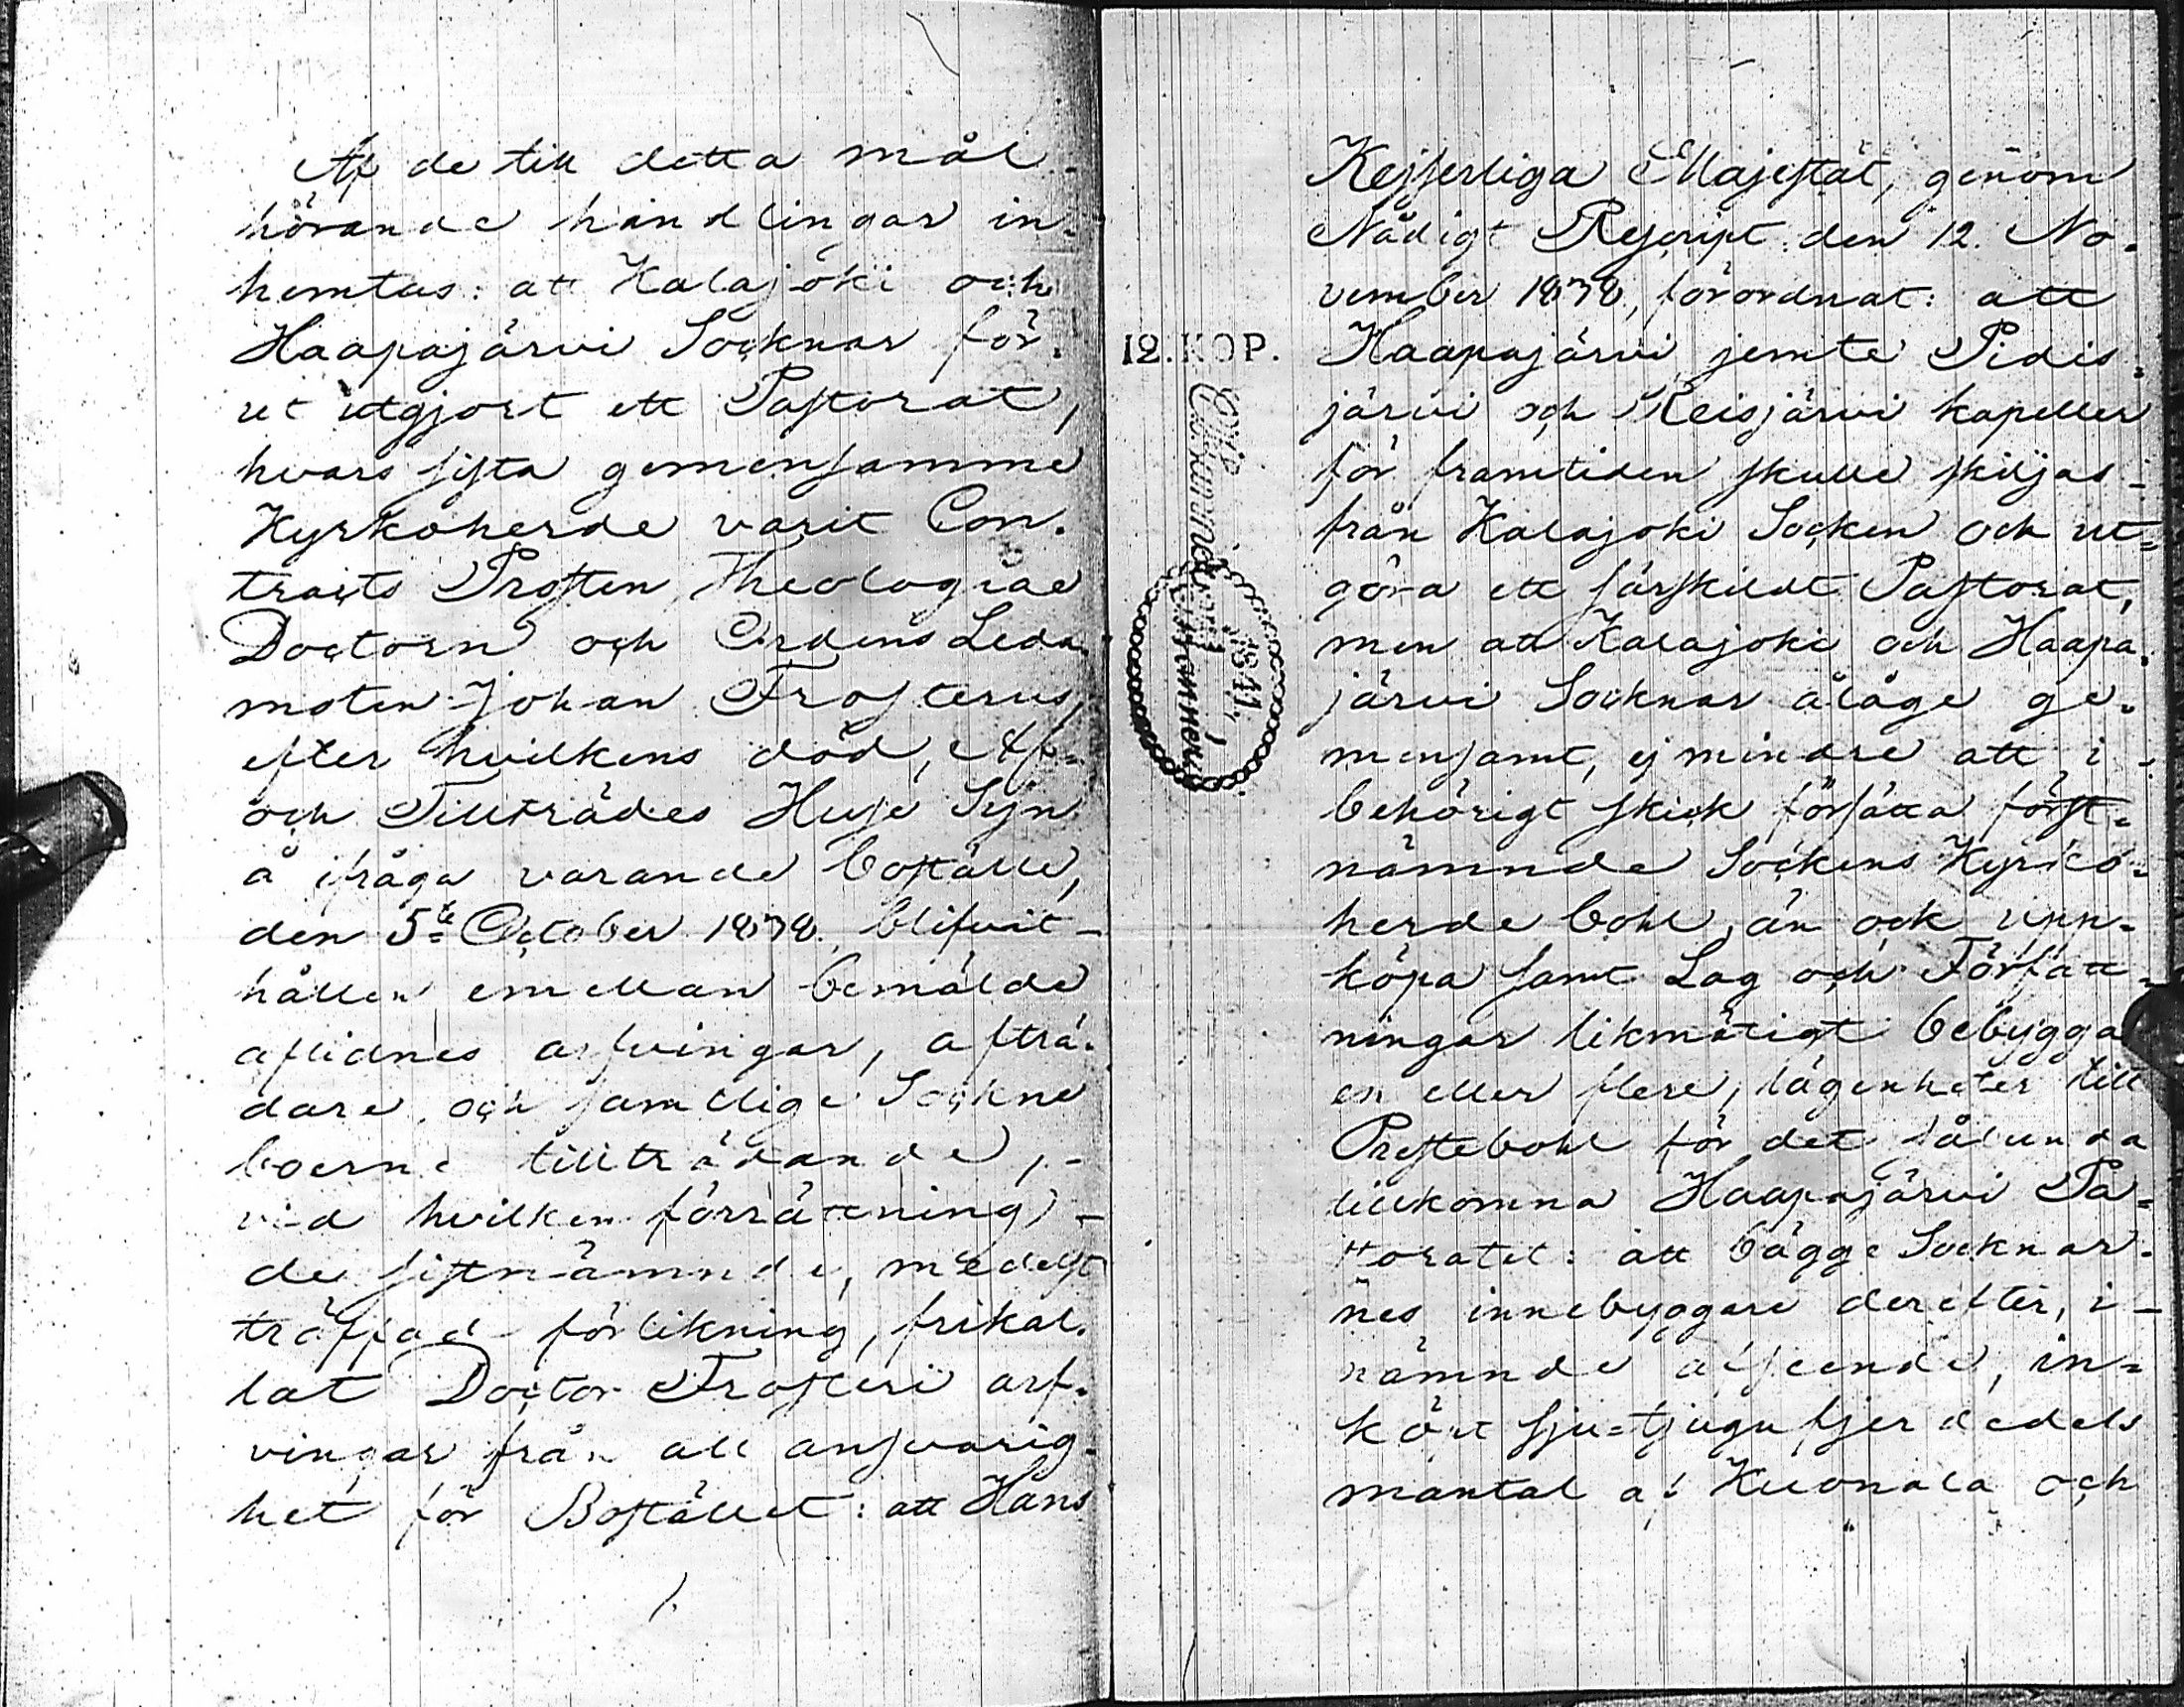 Af de till detta mål
hörande handlingar in-
hemtas: att Kalajoki och
Haapajärvi Socknar för-
ut utgjort ett Pastorat,
hvars sista gemensamme
Kyrkoherde varit Con-
tracts Prosten, Theologiae
Doctorn och Ordens Leda-
moten Johan Frosterus,
efter hvilkens död, Af-
och Tillträdes Huse Syn
å ifråga varande boställe,
den 5te October 1838. blifvit -
hållen emellan bemälde
aflidnes arfvingar, afträ-
dare, och samtlige Sockne
boerne tillträdande, -
vid hvilken förrättning -
de sistnämnde, medelst
träffad förlikning, frikal-
lat Doctor Frosteri arf-
vingar från all ansvarig-
het för Bostället: att Hans
Kejserliga Majestät, genom
Nådigt Rescript den 12. No-
vember 1838, förordnat: att
12. KOP.
Haapajärvi jemte Pidis-
järvi och Reisjärvi kapeller
för framtiden skulle skiljas -
från Kalajoki Socken och ut=
göra ett särskildt Pastorat,
men att Kalajoki och Haapa-
järvi Socknar ålåge ge-
mensamt, ej mindre att i -
behörigt skick försätta först=
nämnde Sockens Kyrko=
herde bohl, än ock upp-
köpa samt Lag och Författ=
ningar likmätigt bebygga
en eller flere, lägenheter till
Prestebohl för det sålunda
tillkomna Haapajärvi Pa=
storatet: att bägge Socknar-
nes innebyggare derefter, i -
nämnde afseende, in=
köpt sju=tjugufjerdedels
mantal af Kuonala och
1841,